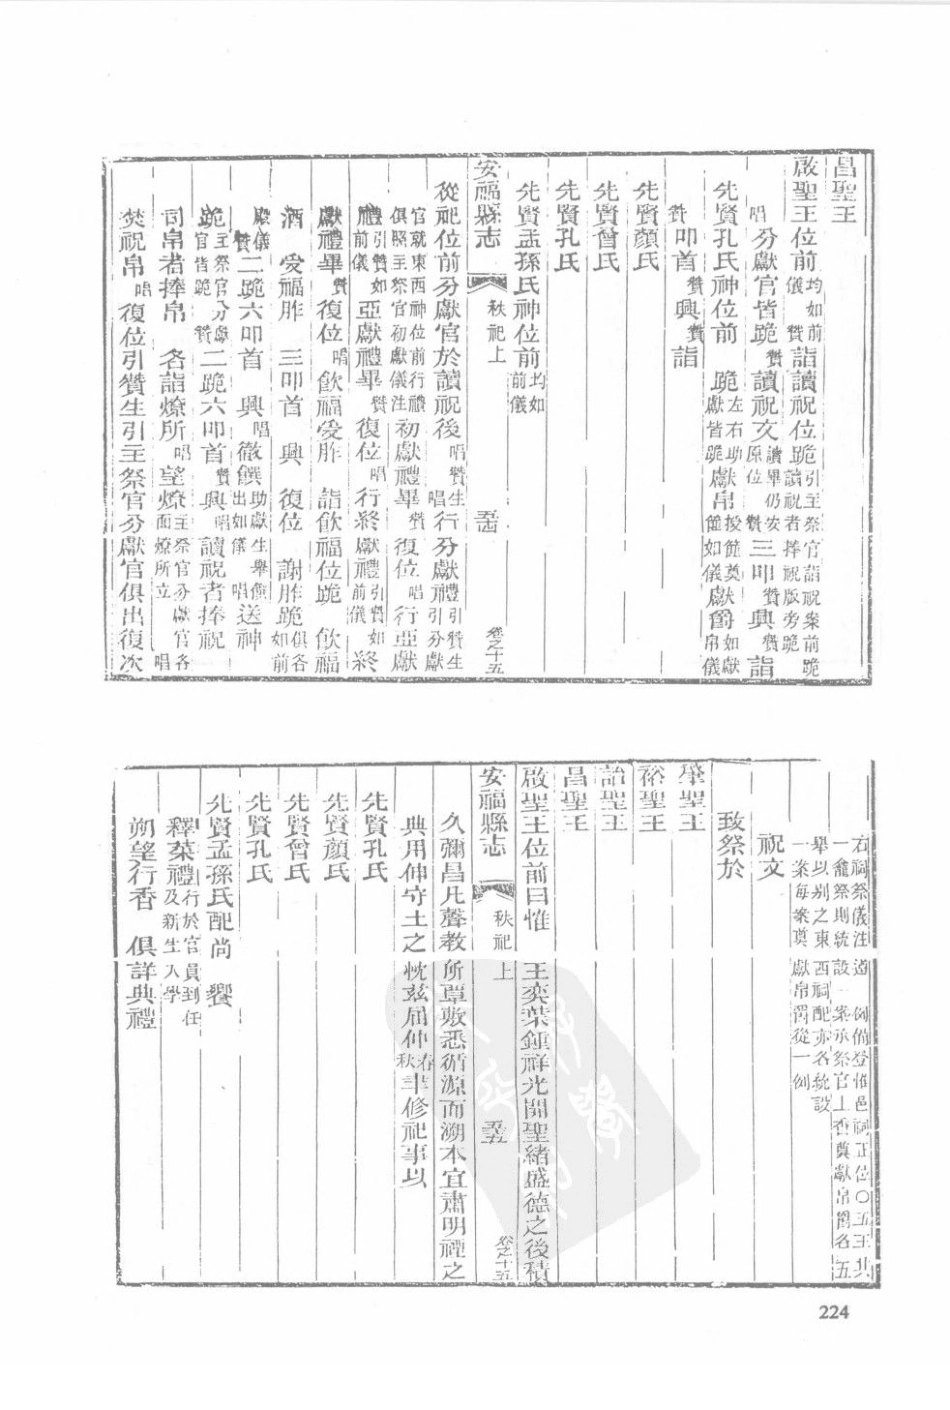 昌聖王
啟聖王位前均如前儀贊詣讀祝位跪引主祭官詣祝案前跪讀祝者捧祝版旁跪
唱分獻官皆跪贊讀祝文讀畢仍安原位贊三叩贊興贊詣
先賢孔氏神位前　跪左右助獻皆跪獻帛授館奠館如儀獻爵如獻帛儀
贊叩首贊興贊詣
先賢顏氏
先賢曾氏
先賢孔氏
先賢孟孫氏神位前均如前儀
安福縣志　秩祀上　五十四　卷之十五
從祀位前分獻官於讀祝後唱贊生唱行分獻禮引贊生引分獻
官就東西神位前行禮俱照主祭官初獻儀注初獻禮畢贊復位唱行亞獻
禮引贊如前儀亞獻禮畢贊復位唱行終獻禮引贊如前儀終
獻禮畢贊復位唱飲福受胙　詣飲福位跪　飲福
酒　受福胙　三叩首　興　復位　謝胙跪俱各如前
獻儀贊二跪六叩首　興唱徹饌助獻生舉饌出如儀唱送神
跪主祭官分獻官皆跪贊二跪六叩首贊興唱讀祝者捧祝
司帛者捧帛　各詣燎所唱望燎主祭官分獻官各面燎所立唱
焚祝帛唱復位引贊生引主祭官分獻官俱出復次
右祠祭儀注遵　例備登惟邑祠正位〇五王共
一龕祭則統設一案承祭官上香奠獻帛爵各五
舉以別之東西祠配亦各統設
一案每案奠獻帛爵從一例
祝文
致祭於
肇聖王
裕聖王
詒聖王
昌聖王
啟聖王位前曰惟　王奕葉鍾祥光開聖緒盛德之後積
安福縣志　秩祀上　五十五　卷之十五
久彌昌凡聲教所覃敷悉循源而溯本宜肅明禋之
典用伸守土之忱茲屆仲春秋聿修祀事以
先賢孔氏
先賢顏氏
先賢曾氏
先賢孔氏
先賢孟孫氏配尚　饗
釋菜禮行於官員到任及新生入學
朔望行香　俱詳典禮
224